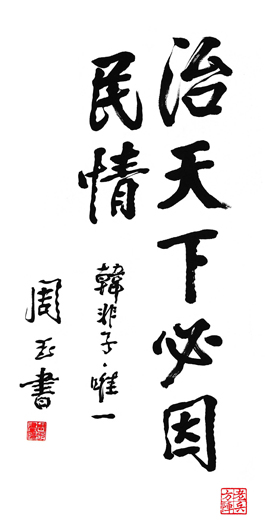 治天下必因
民情
韓非子·唯一
周玉書